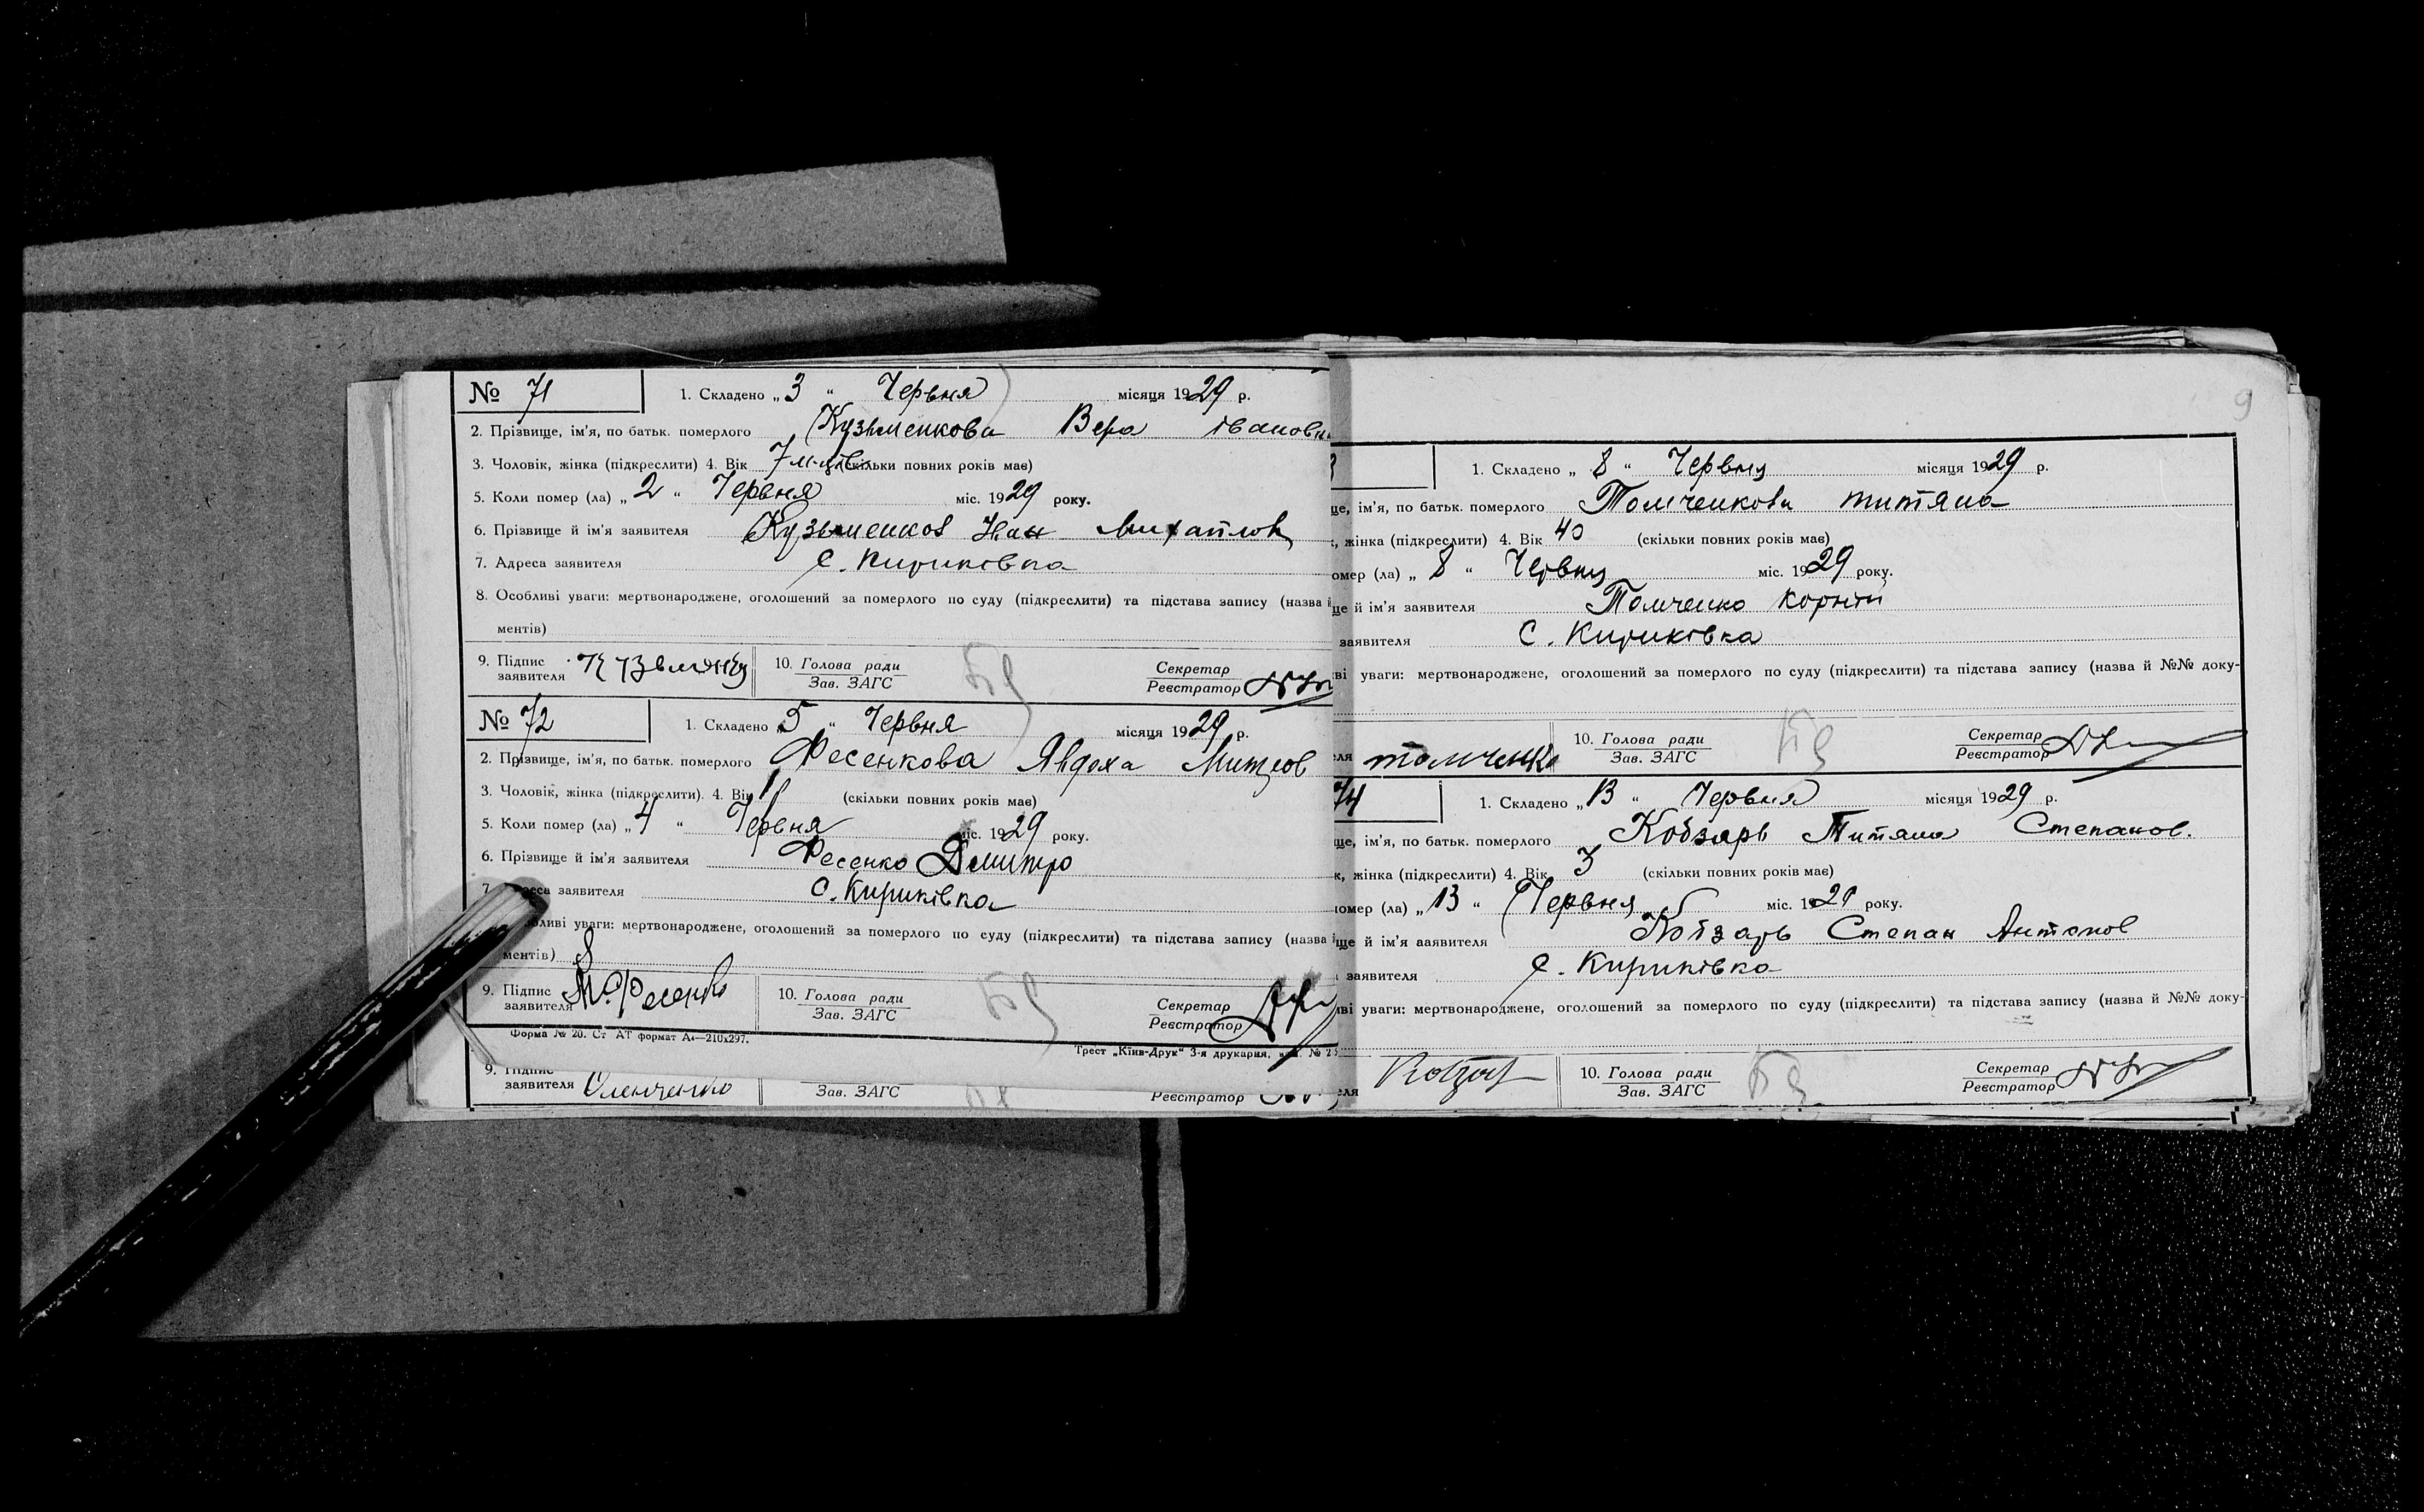 № 71 1. Складено „ 3 “ Червня місяця 1929 р.
2. Прізвище, ім'я, по батьк. померлого Кузьменкова Вера івановн
3. Чоловік, жінка (підкреслити) 4. Вік 7 (скільки повних років має)
5. Коли помер (ла) „ 2 “ Червня міс. 1929 року.
6. Прізвище й ім'я заявителя Кузьменков Михайлов
7. Адреса заявителя с. Кириківка
8. Особливі уваги: мертвонароджене, оголошений за померлого по суду (підкреслити) та підстава запису (назва
ментів)
9. Підпис заявителя 10. Голова ради Зав. ЗАГС Секретар Реєстратор
№ 72 1. Складено „ 5 “ Червня місяця 1929 р.
2. Прізвище, ім'я, по батьк. померлого Фесенкова Явдоха
3. Чоловік, жінка (підкреслити). 4. Вік (скільки повних років має)
5. Коли помер (ла) „ 4 “ Червня міс. 1929 року.
6. Прізвище й ім'я заявителя Фесенко Дмитро
7. заявителя с. Кириківка
уваги: мертвонароджене, оголошений за померлого по суду (підкреслити) та підстава запису (назва
ментів)
9. Підпис заявителя Фесенко 10. Голова ради Зав. ЗАГС Секретар Реєстратор
Форма № 20. Ст. АТ формат А4—210х297.
Трест „Київ-Друк“ 3-я друкарня,
9. Підпис
заявителя Зав. ЗАГС Реєстратор
9
1. Складено „ 8 “ місяця 1929 р.
ім'я, по батьк. померлого Томченкова титяна
жінка (підкреслити) 4. Вік 40 (скільки повних років має)
омер (ла) „ 8 “ міс. 1929 року.
й ім'я заявителя Томченко корній
заявителя С. Кириківка
уваги: мертвонароджене, оголошений за померлого по суду (підкреслити) та підстава запису (назва й №№ доку-
томченко 10. Голова ради Зав. ЗАГС Секретар Реєстратор
74 1. Складено „ 13 “ Червня місяця 1929 р.
ім'я, по батьк. померлого Кобзарь Титяна Степанов.
жінка (підкреслити) 4. Вік 3 (скільки повних років має)
омер (ла) „ 13 “ Червня міс. 1929 року.
й ім'я заявителя Кобзарь Степан Антонов
заявителя с. Кириківка
уваги: мертвонароджене, оголошений за померлого по суду (підкреслити) та підстава запису (назва й №№ доку-
10. Голова ради Зав. ЗАГС Секретар Реєстратор